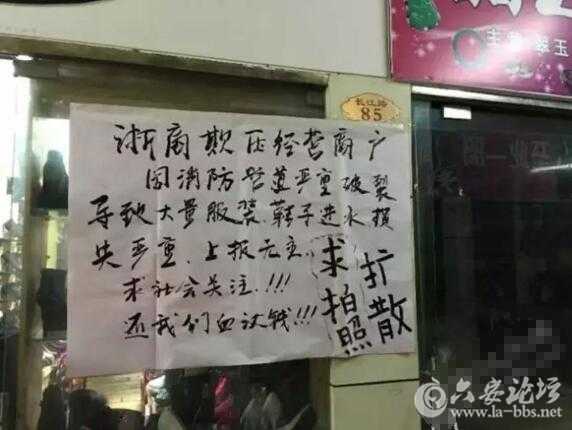 长江路
85
浙商欺压经营商户
因消防管道严重破裂
导致大量服装、鞋子进水损
失严重、上报无
求社会关注!!!
还我们血汗钱!!!
求拍照
扩散
主营 翠玉
六安论坛
www.la-bbs.net